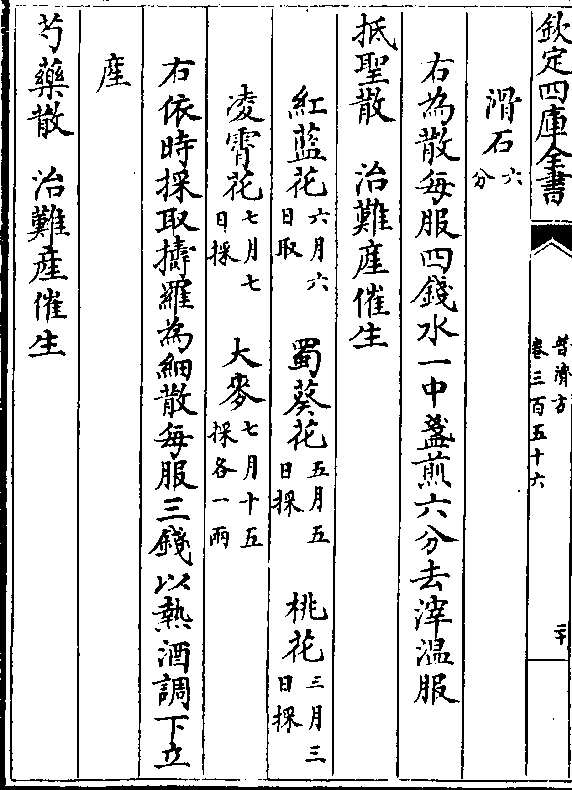 欽定四庫全書
普濟方
卷三百五十六
二十
滑石六分
右為散每服四錢水一中盞煎六分去滓温服
抵聖散　治難産催生
紅藍花六月六日取　蜀葵花五月五日採　桃花三月三日採
凌霄花七月七日採　大麥七月十五採各一兩
右依時採取擣羅為細散每服三錢以熱酒調下立
産
芍藥散　治難産催生